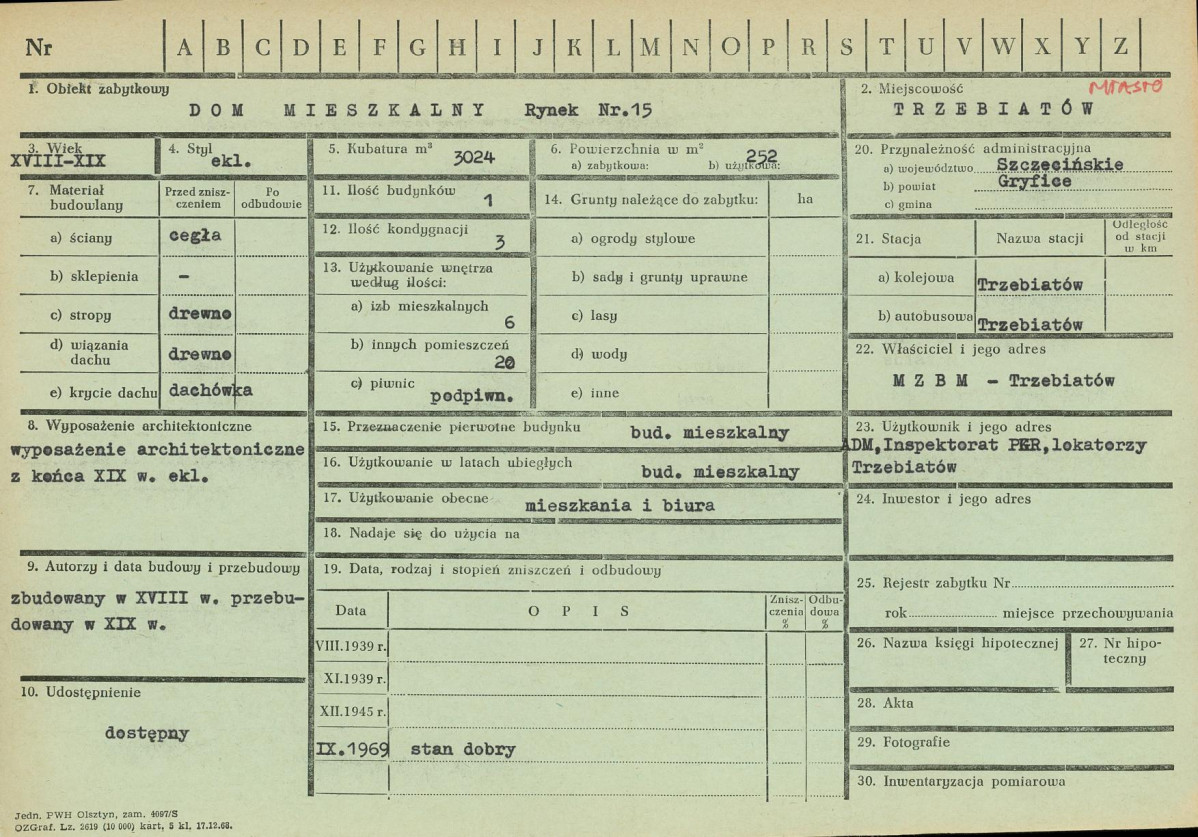 Nr A B C D E F G H I J K L M N O P R S T U V W X Y Z
1. Obiekt zabytkowy
DOM MIESZKALNY Rynek Nr.15
2. Miejscowość
MIASTO
TRZEBIATÓW
3. Wiek
XVIII-XIX
4. Styl
ekl.
5. Kubatura m³
3024
6. Powierzchnia w m²
a) zabytkowa: b) użytkowa:
252
20. Przynależność administracyjna
a) województwo Szczecińskie
b) powiat Gryfice
c) gmina
7. Materiał budowlany
Przed znisz-
czeniem
Po
odbudowie
a) ściany cegła
b) sklepienia -
c) stropy drewno
d) wiązania
dachu drewno
e) krycie dachu dachówka
11. Ilość budynków
1
12. Ilość kondygnacji
3
13. Użytkowanie wnętrza
według ilości:
a) izb mieszkalnych
6
b) innych pomieszczeń
20
c) piwnic
podpiwn.
14. Grunty należące do zabytku: ha
a) ogrody stylowe
b) sady i grunty uprawne
c) lasy
d) wody
e) inne
21. Stacja Nazwa stacji
Odległość
od stacji
w km
a) kolejowa Trzebiatów
b) autobusowa Trzebiatów
22. Właściciel i jego adres
M Z B M - Trzebiatów
8. Wyposażenie architektoniczne
wyposażenie architektoniczne
z końca XIX w. ekl.
15. Przeznaczenie pierwotne budynku bud. mieszkalny
16. Użytkowanie w latach ubiegłych bud. mieszkalny
17. Użytkowanie obecne mieszkania i biura
18. Nadaje się do użycia na
23. Użytkownik i jego adres
ADM,Inspektorat PER,lokatorzy
Trzebiatów
24. Inwestor i jego adres
9. Autorzy i data budowy i przebudowy
zbudowany w XVIII w. przebu-
dowany w XIX w.
10. Udostępnienie
dostępny
19. Data, rodzaj i stopień zniszczeń i odbudowy
Data O P I S
Znisz-
czenia
%
Odbu-
dowa
%
VIII.1939 r.
XI.1939 r.
XII.1945 r.
IX.1969 stan dobry
25. Rejestr zabytku Nr
rok miejsce przechowywania
26. Nazwa księgi hipotecznej
27. Nr hipo-
teczny
28. Akta
29. Fotografie
30. Inwentaryzacja pomiarowa
Jedn. PWH Olsztyn, zam. 4097/S
OZGraf. Lz. 2619 (10 000) kart, 5 kl. 17.12.68.